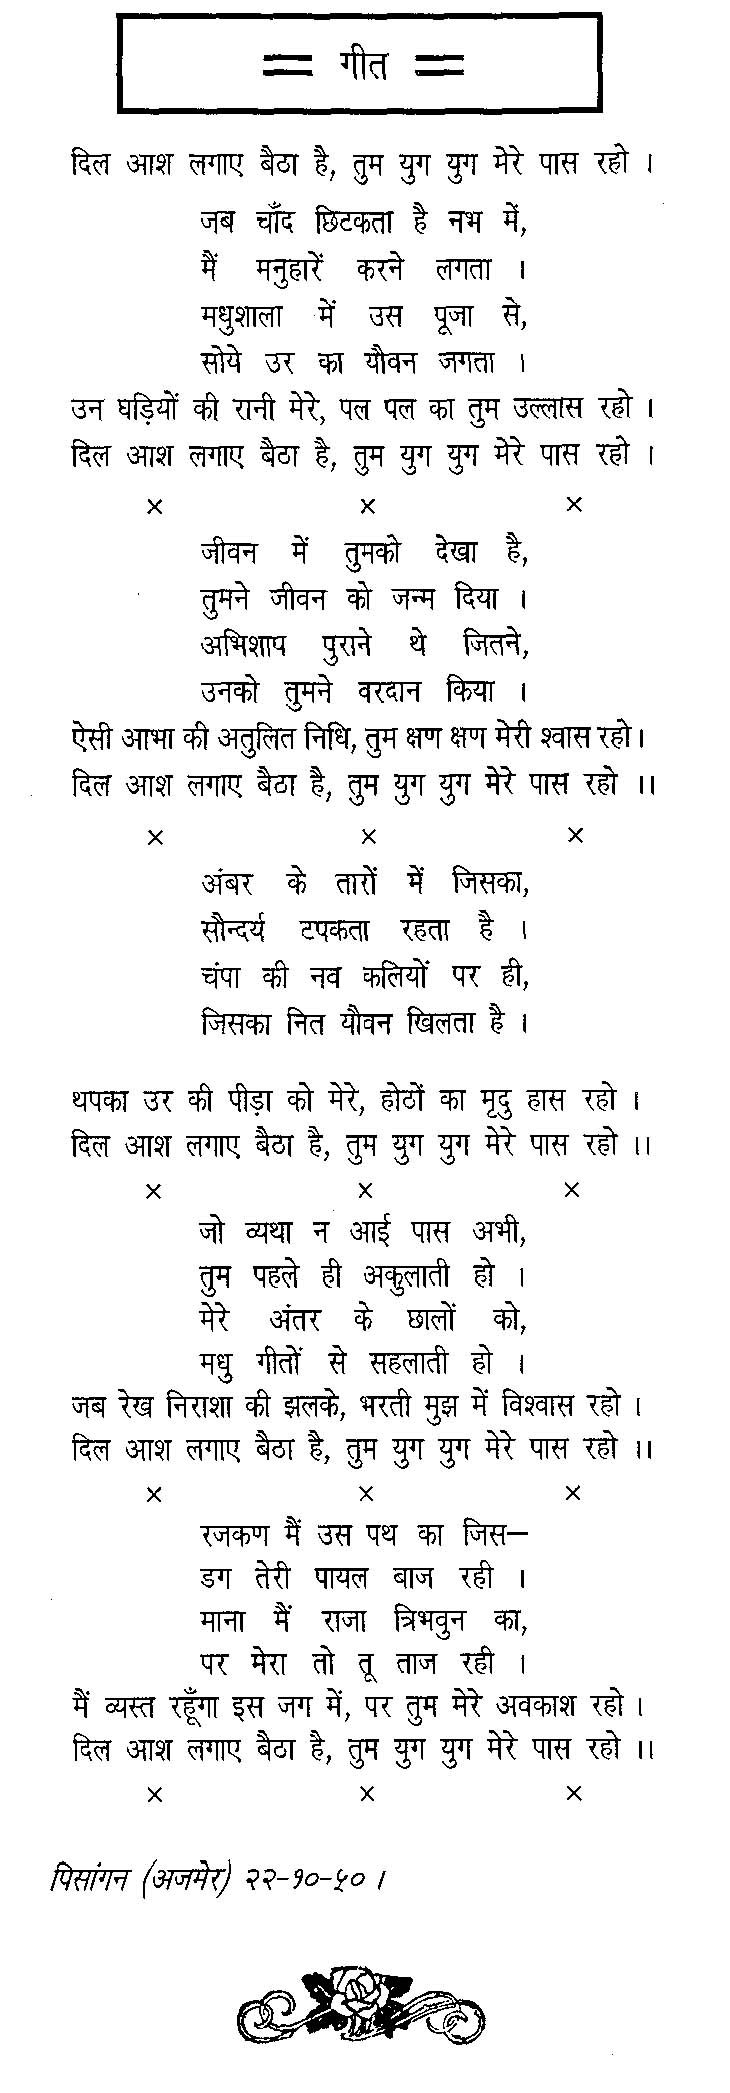 = गीत =
दिल आश लगाए बैठा है, तुम युग युग मेरे पास रहो ।
जब चाँद छिटकता है नभ में,
मैं मनुहारें करने लगता ।
मधुशाला में उस पूजा से,
सोये उर का यौवन जगता ।
उन घड़ियों की रानी मेरे, पल पल का तुम उल्लास रहो ।
दिल आश लगाए बैठा है, तुम युग युग मेरे पास रहो ।
× × ×
जीवन में तुमको देखा है,
तुमने जीवन को जन्म दिया ।
अभिशाप पुराने थे जितने,
उनको तुमने वरदान किया ।
ऐसी आभा की अतुलित निधि, तुम क्षण क्षण मेरी श्वास रहो ।
दिल आश लगाए बैठा है, तुम युग युग मेरे पास रहो ।।
× × ×
अंबर के तारों में जिसका,
सौन्दर्य टपकता रहता है ।
चंपा की नव कलियों पर ही,
जिसका नित यौवन खिलता है ।
थपका उर की पीड़ा को मेरे, होठों का मृदु हास रहो ।
दिल आश लगाए बैठा है, तुम युग युग मेरे पास रहो ।।
× × ×
जो व्यथा न आई पास अभी,
तुम पहले ही अकुलाती हो ।
मेरे अंतर के छालों को,
मधु गीतों से सहलाती हो ।
जब रेख निराशा की झलके, भरती मुझ में विश्वास रहो ।
दिल आश लगाए बैठा है, तुम युग युग मेरे पास रहो ।।
× × ×
रजकण मैं उस पथ का जिस—
डग तेरी पायल बाज रही ।
माना मैं राजा त्रिभवुन का,
पर मेरा तो तू ताज रही ।
मैं व्यस्त रहूँगा इस जग में, पर तुम मेरे अवकाश रहो ।
दिल आश लगाए बैठा है, तुम युग युग मेरे पास रहो ।।
× × ×
पिसांगन (अजमेर) २२-१०-५० ।